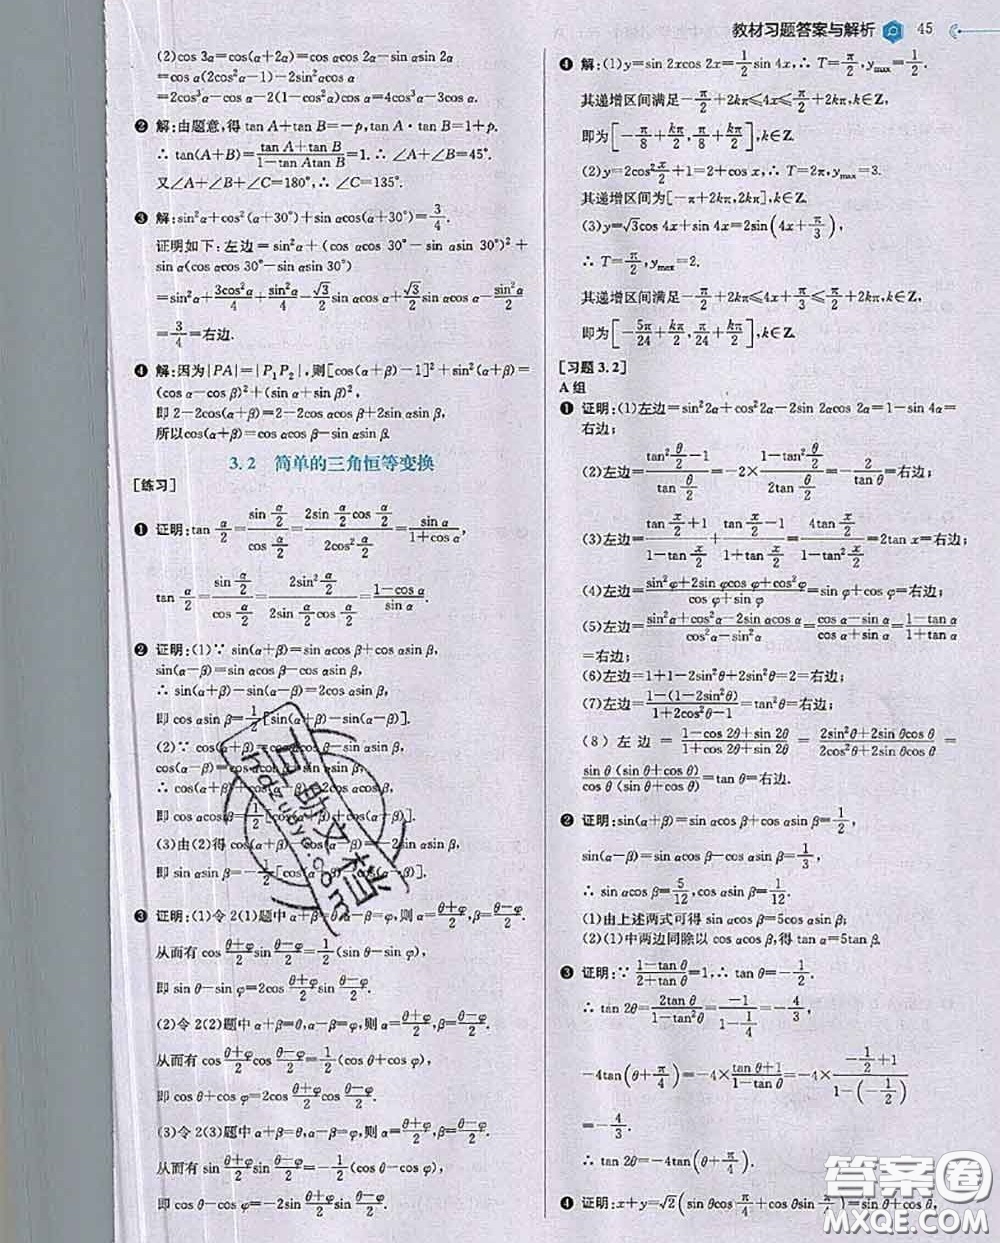 教材习题答案与解析 45
(2)cos 3α=cos(2α+α)=cos 2αcos α−sin αsin 2α
=cos α(2cos²α−1)−2sin²αcos α
=2cos³α−cos α−2(1−cos²α)cos α=4cos³α−3cos α.
❷ 解:由题意,得 tan A+tan B=−p,tan A·tan B=1+p.
∴ tan(A+B)=(tan A+tan B)/(1−tan Atan B)=1.∴ ∠A+∠B=45°.
又∠A+∠B+∠C=180°,∴ ∠C=135°.
❸ 解:sin²α+cos²(α+30°)+sin αcos(α+30°)=3/4.
证明如下:左边=sin²α+(cos αcos 30°−sin αsin 30°)²+
sin α(cos αcos 30°−sin αsin 30°)
=sin²α+3cos²α/4+sin²α/4−√3/2 sin αcos α+√3/2 sin αcos α−sin²α/2
=3/4=右边.
❹ 解:因为|PA|=|P₁P₂|,则[cos(α+β)−1]²+sin²(α+β)=
(cos α−cos β)²+(sin α+sin β)²,
即 2−2cos(α+β)=2−2cos αcos β+2sin αsin β,
所以cos(α+β)=cos αcos β−sin αsin β.
3.2 简单的三角恒等变换
[练习]
❶ 证明:tan α/2=(sin α/2)/(cos α/2)=(2sin α/2 cos α/2)/(2cos² α/2)=sin α/(1+cos α),
tan α/2=(sin α/2)/(cos α/2)=(2sin² α/2)/(2sin α/2 cos α/2)=(1−cos α)/sin α.
❷ 证明:(1)∵ sin(α+β)=sin αcos β+cos αsin β,
sin(α−β)=sin αcos β−cos αsin β,
∴ sin(α+β)−sin(α−β)=2cos αsin β,
即 cos αsin β=1/2[sin(α+β)−sin(α−β)].
(2)∵ cos(α+β)=cos αcos β−sin αsin β,
cos(α−β)=cos αcos β+sin αsin β,
∴ cos(α+β)+cos(α−β)=2cos αcos β,
即 cos αcos β=1/2[cos(α+β)+cos(α−β)].
(3)由(2)得 cos(α+β)−cos(α−β)=−2sin αsin β,
即 sin αsin β=−1/2[cos(α+β)−cos(α−β)].
❸ 证明:(1)令 2(1)题中 α+β=θ,α−β=φ,则 α=(θ+φ)/2,β=(θ−φ)/2.
从而有 cos (θ+φ)/2 sin (θ−φ)/2=1/2(sin θ−sin φ),
即 sin θ−sin φ=2cos (θ+φ)/2 sin (θ−φ)/2.
(2)令 2(2)题中 α+β=θ,α−β=φ,则 α=(θ+φ)/2,β=(θ−φ)/2.
从而有 cos (θ+φ)/2 cos (θ−φ)/2=1/2(cos θ+cos φ),
即 cos θ+cos φ=2cos (θ+φ)/2 cos (θ−φ)/2.
(3)令 2(3)题中 α+β=θ,α−β=φ,则 α=(θ+φ)/2,β=(θ−φ)/2.
从而有 sin (θ+φ)/2 sin (θ−φ)/2=−1/2(cos θ−cos φ),
即 cos θ−cos φ=−2sin (θ+φ)/2 sin (θ−φ)/2.
❹ 解:(1)y=sin 2xcos 2x=1/2 sin 4x,∴ T=π/2,yₘₐₓ=1/2.
其递增区间满足−π/2+2kπ≤4x≤π/2+2kπ,k∈Z,
即为[−π/8+kπ/2,π/8+kπ/2],k∈Z.
(2)y=2cos² x/2+1=2+cos x,∴ T=2π,yₘₐₓ=3.
其递增区间为[−π+2kπ,2kπ],k∈Z.
(3)y=√3cos 4x+sin 4x=2sin(4x+π/3),
∴ T=π/2,yₘₐₓ=2.
其递增区间满足−π/2+2kπ≤4x+π/3≤π/2+2kπ,k∈Z,
即为[−5π/24+kπ/2,π/24+kπ/2],k∈Z.
[习题 3.2]
A 组
❶ 证明:(1)左边=sin²2α+cos²2α−2sin 2αcos 2α=1−sin 4α=
右边;
(2)左边=(tan² θ/2−1)/(tan θ/2)=−2×(1−tan² θ/2)/(2tan θ/2)=−2/tan θ=右边;
(3)左边=(tan x/2+1)/(1−tan x/2)+(tan x/2−1)/(1+tan x/2)=(4tan x/2)/(1−tan² x/2)=2tan x=右边;
(4)左边=(sin²φ+2sin φcos φ+cos²φ)/(cos φ+sin φ)=sin φ+cos φ=右边;
(5)左边=(sin²α+cos²α−2sin αcos α)/(cos²α−sin²α)=(cos α−sin α)/(cos α+sin α)=(1−tan α)/(1+tan α)=
右边;
(6)左边=1+1−2sin²θ+2sin²θ=2=右边;
(7)左边=(1−(1−2sin²θ))/(1+2cos²θ−1)=tan²θ=右边;
(8)左边=(1−cos 2θ+sin 2θ)/(1+cos 2θ+sin 2θ)=(2sin²θ+2sin θcos θ)/(2cos²θ+2sin θcos θ)=
sin θ(sin θ+cos θ)/cos θ(sin θ+cos θ)=tan θ=右边.
❷ 证明:sin(α+β)=sin αcos β+cos αsin β=1/2,
sin(α−β)=sin αcos β−cos αsin β=1/3,
∴ sin αcos β=5/12,cos αsin β=1/12.
(1)由上述两式可得 sin αcos β=5cos αsin β;
(2)(1)中两边同除以 cos αcos β,得 tan α=5tan β.
❸ 证明:∵ (1−tan θ)/(2+tan θ)=1,∴ tan θ=−1/2.
∴ tan 2θ=2tan θ/(1−tan²θ)=−1/(1−1/4)=−4/3,
−4tan(θ+π/4)=−4×(tan θ+1)/(1−tan θ)=−4×(−1/2+1)/(1−(−1/2))=
−4/3.
∴ tan 2θ=−4tan(θ+π/4).
❹ 证明:x+y=√2(sin θcos π/4+cos θsin π/4)=sin θ+cos θ,
互助文档
hdzuoye.com
答案圈
MXQE.COM